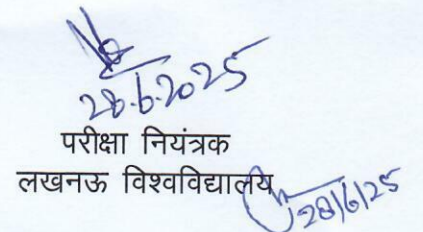 28.6.2025
परीक्षा नियंत्रक
लखनऊ विश्वविद्यालय
28/6/25